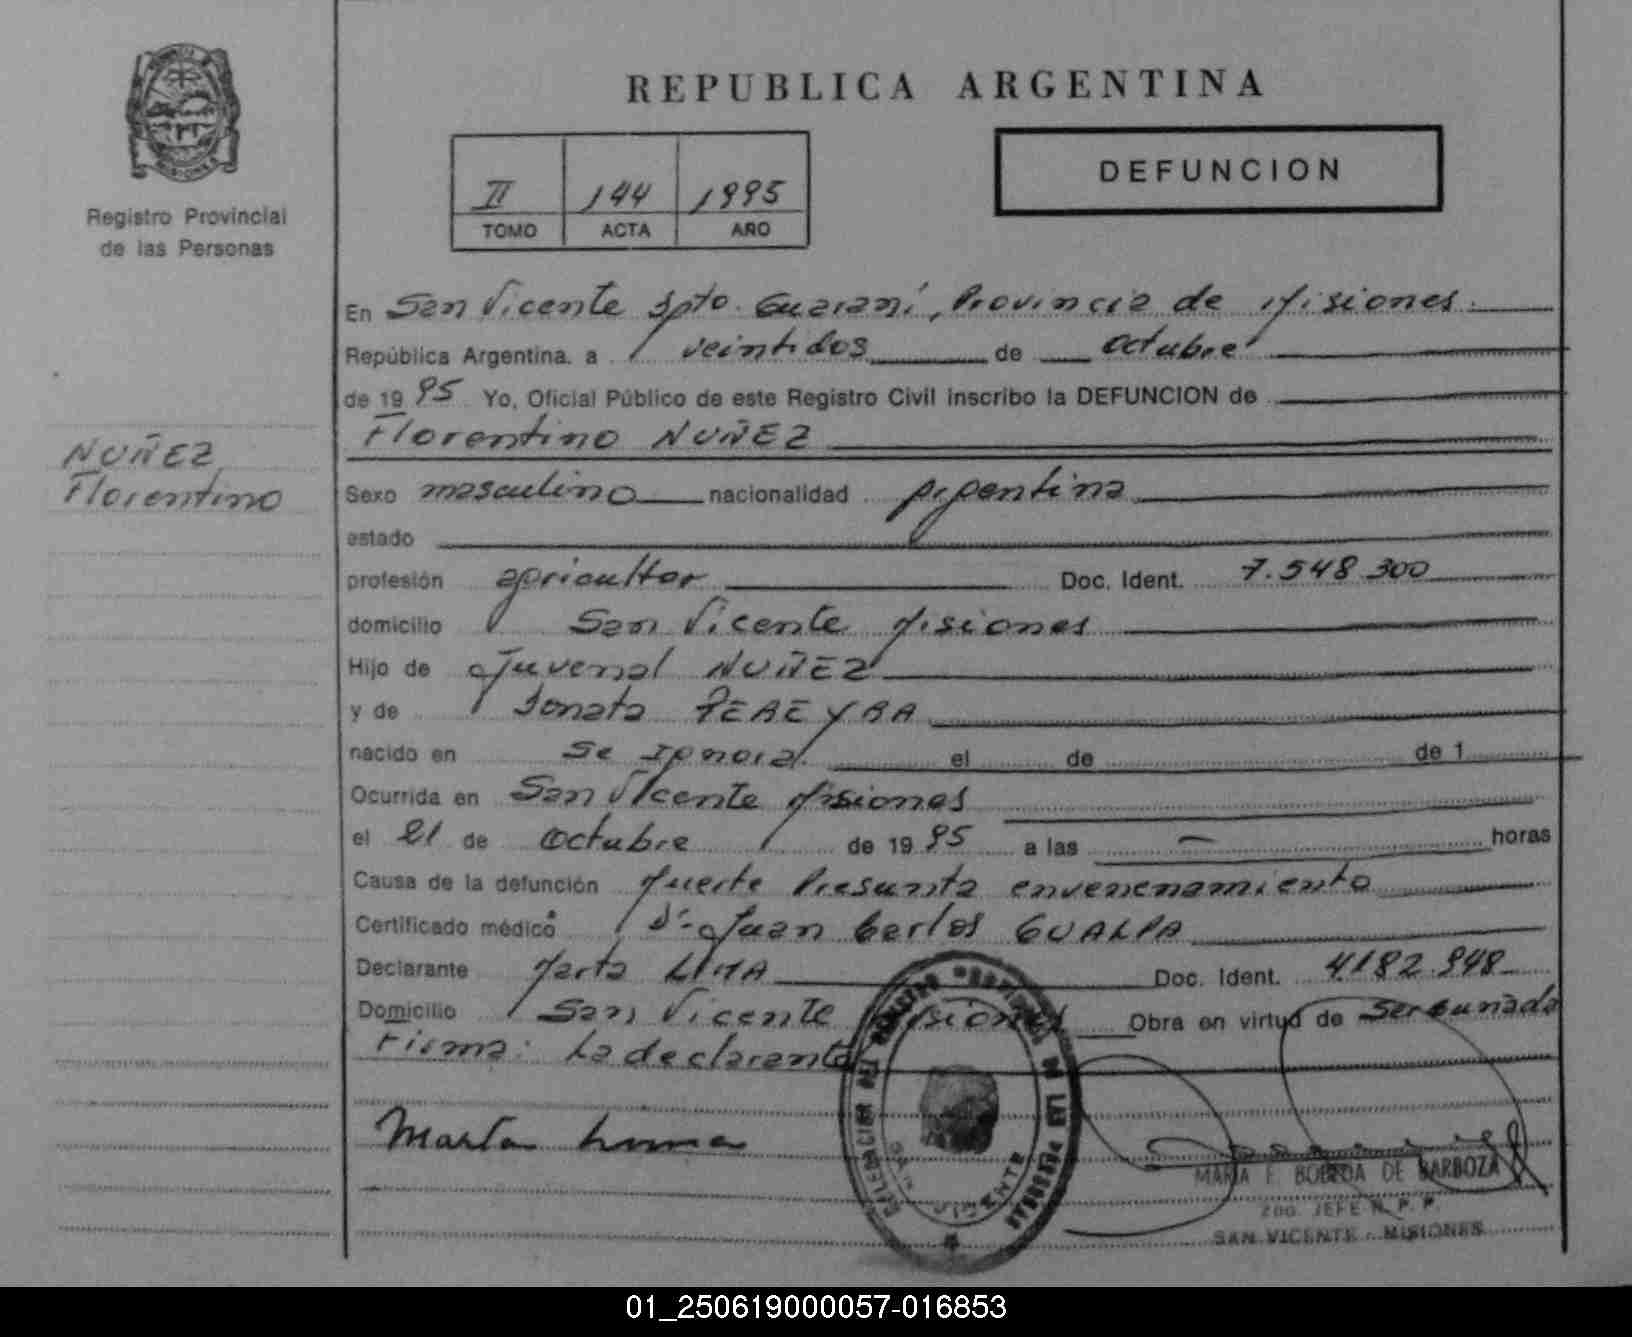 REPUBLICA ARGENTINA
DEFUNCION
II 144 1995
TOMO ACTA AÑO
Registro Provincial
de las Personas
NUÑEZ
Florentino
En San Vicente Dpto. Guaraní, Provincia de Misiones.
República Argentina. a veintidos de octubre
de 1995 Yo, Oficial Público de este Registro Civil inscribo la DEFUNCION de
Florentino NUÑEZ
Sexo masculino nacionalidad Argentina
estado
profesión agricultor Doc. Ident. 7.548.300
domicilio San Vicente Misiones
Hijo de Juvenal NUÑEZ
y de Donata PEREYRA
nacido en Se Ignora el de de 1
Ocurrida en San Vicente Misiones
el 21 de octubre de 1995 a las - horas
Causa de la defunción Muerte Presunta envenenamiento
Certificado médico Dr. Juan Carlos GUALPA
Declarante Marta LIMA Doc. Ident. 4182.948
Domicilio San Vicente Misiones Obra en virtud de ser
Firma: La declarante
Marta
MARIA F. BOBEDA DE BARBOZA
2do. JEFE R. P. P.
SAN VICENTE - MISIONES
SAN VICENTE
DE LAS PERSONAS
01_250619000057-016853